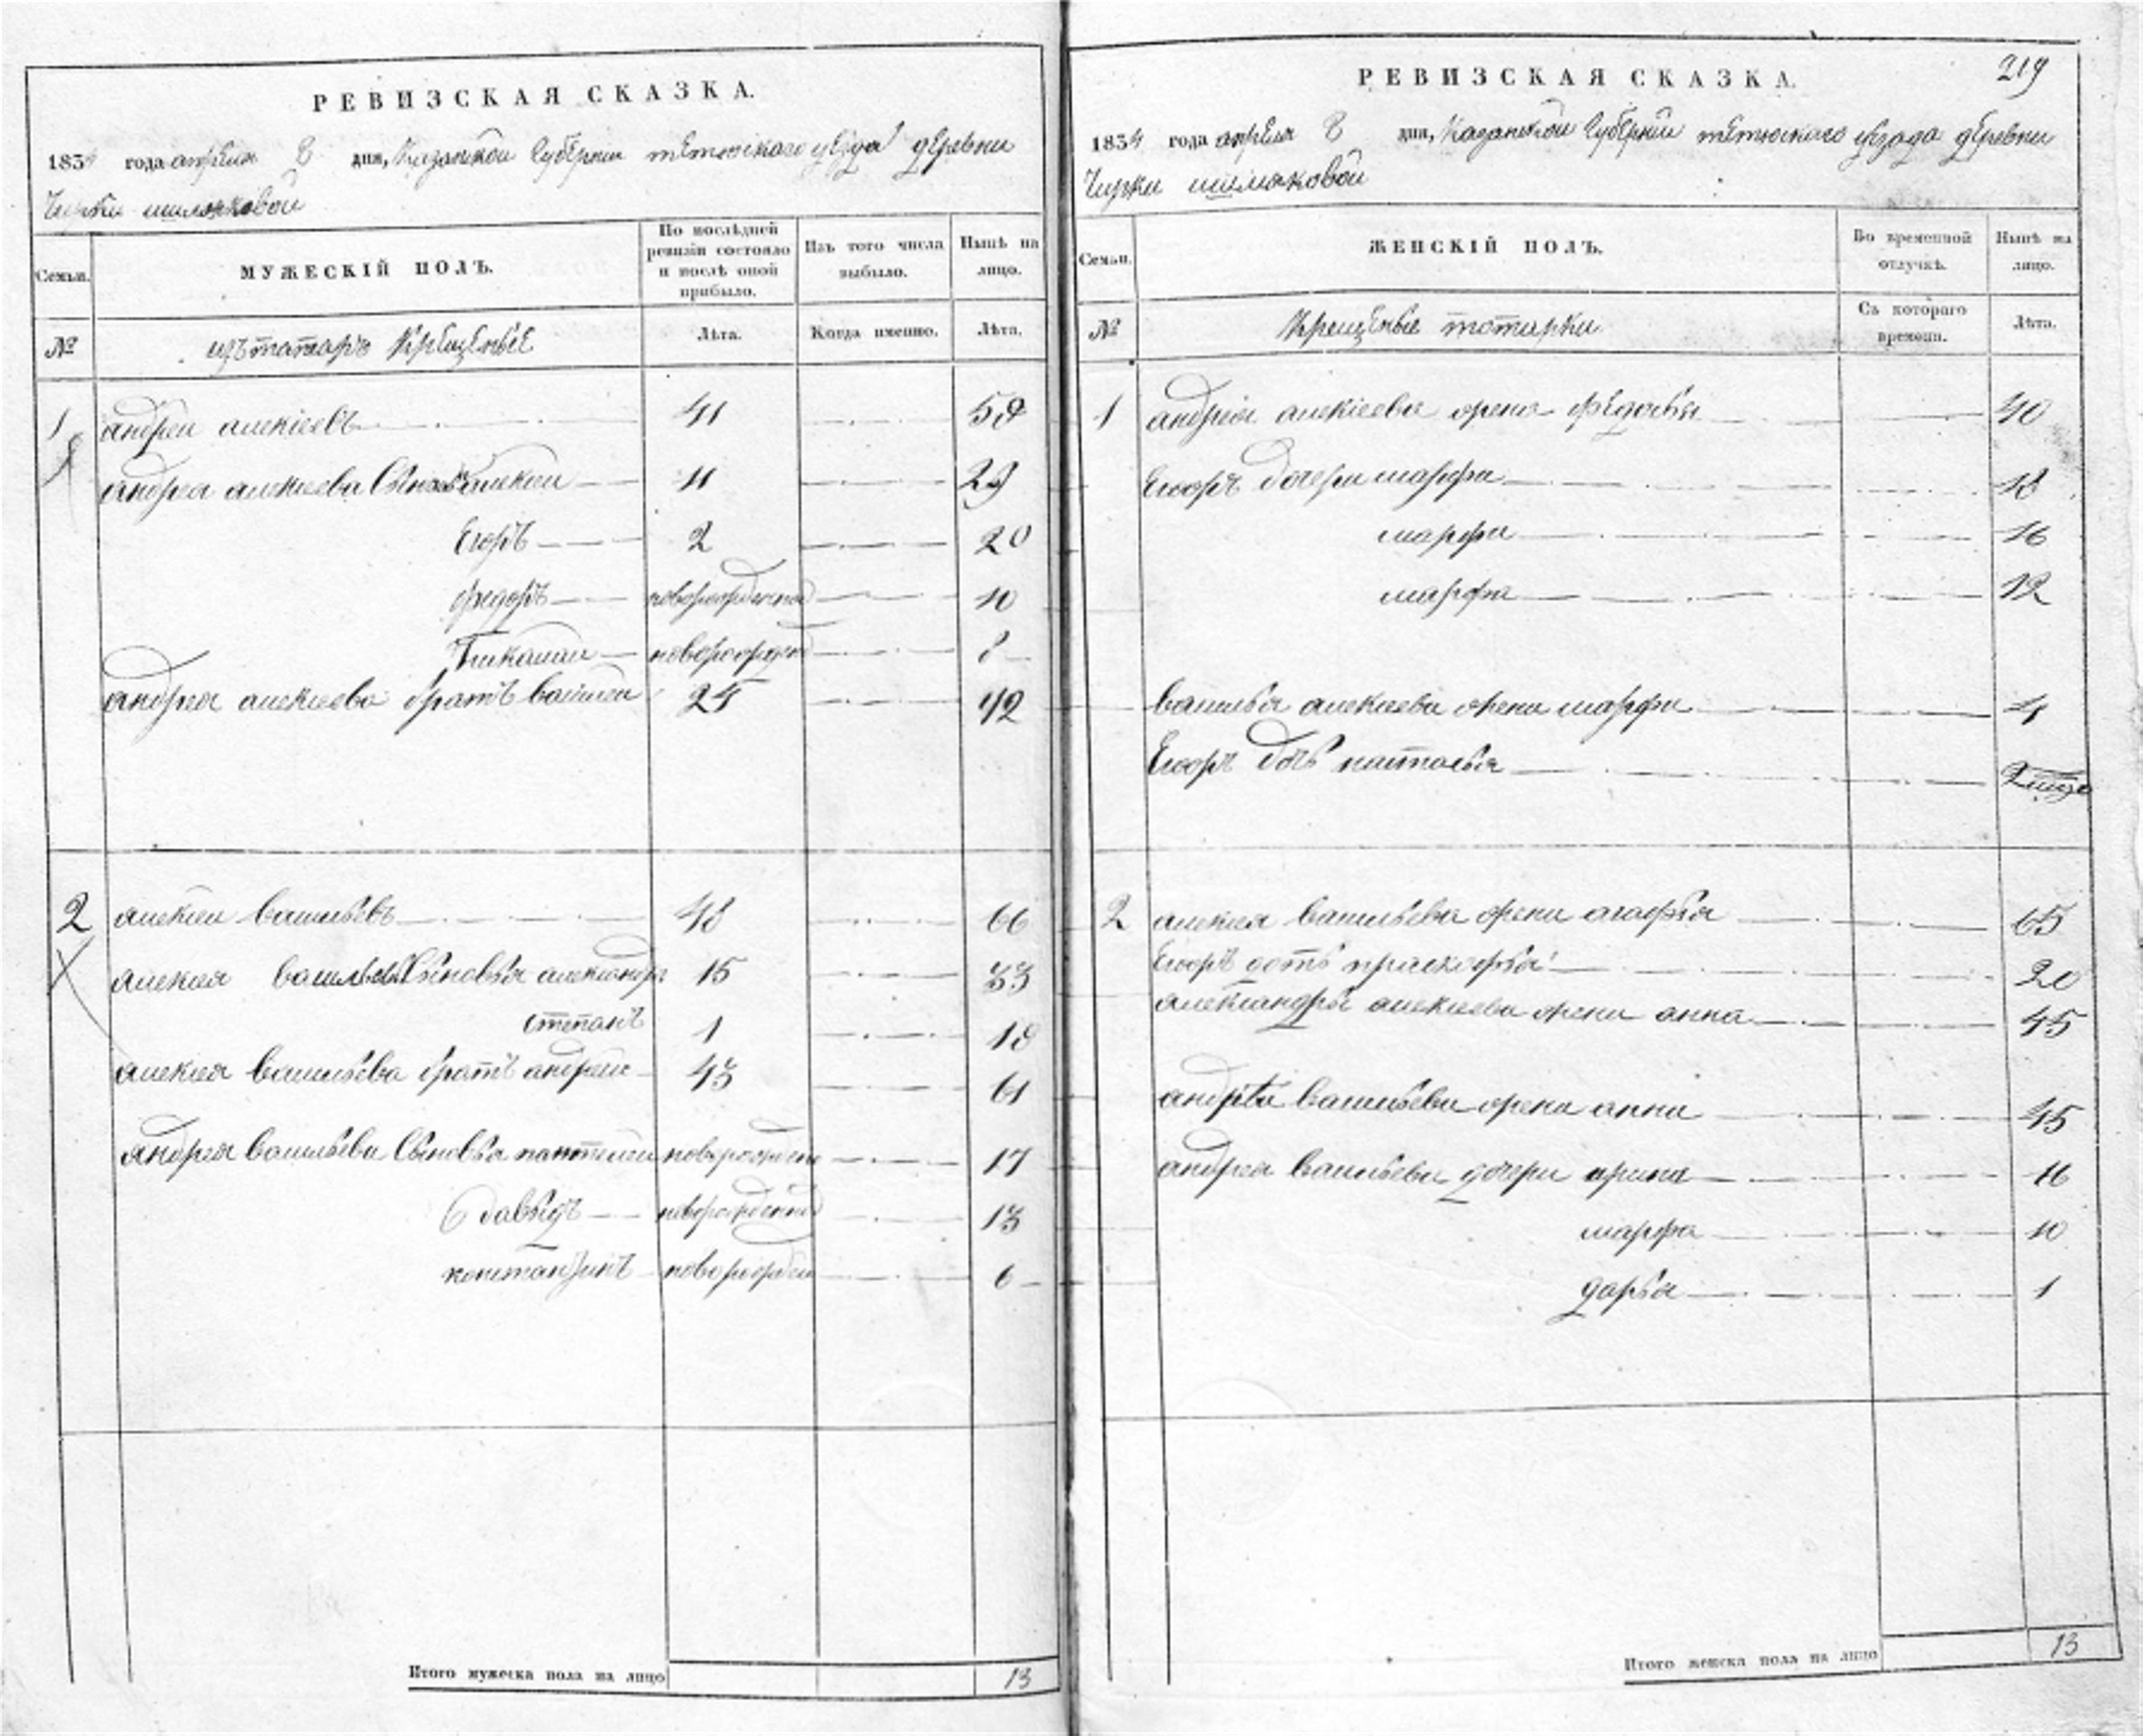 РЕВИЗСКАЯ СКАЗКА.
1834 года апреля 8 дня, Казанской Губернии тетюского уезда деревни
Чирки шиляковой
Семьи.
МУЖЕСКІЙ ПОЛЪ.
По послѣдней ревизіи состояло и послѣ оной прибыло.
Изъ того числа выбыло.
Нынѣ на лицо.
№
изъ татаръ Крещеные
Лѣта.
Когда именно.
Лѣта.
1 андреи алекіевъ 41 59
андрея алекиева 11 29
Егоръ 2 20
федоръ новорожденои 10
новорожде 8
андрея алекиева братъ васили 24 42
2 алекіи васильевъ 48 66
алекия васильева Сыновья александръ 15 33
степанъ 1 19
алекия васильева братъ андреи 43 61
андрея васильева Сыновья пантелеи новорожден 17
давыдъ новорожденои 13
констандинъ новорожден 6
Итого мужеска пола на лицо 13
219
РЕВИЗСКАЯ СКАЗКА.
1834 года апреля 8 дня, Казанской Губернии тетюского уезда деревни
Чирки шиляковой
Семьи.
ЖЕНСКІЙ ПОЛЪ.
Во временной отлучкѣ.
Нынѣ на лицо.
№
Крещеные тотарки
Съ котораго времени.
Лѣта.
1 андрея алекіева жена федосья 40
дочери марфа 18
марфа 16
марфа 12
василья алекиева жена марфа
дочь настасья
2 алекия васильева жена агафья 65
дочь прасковья 20
александры алекиева жена анна 45
андрея васильева жена анна 45
андрея васильева дочери арина 16
марфа 10
дарья 1
Итого женска пола на лицо 13